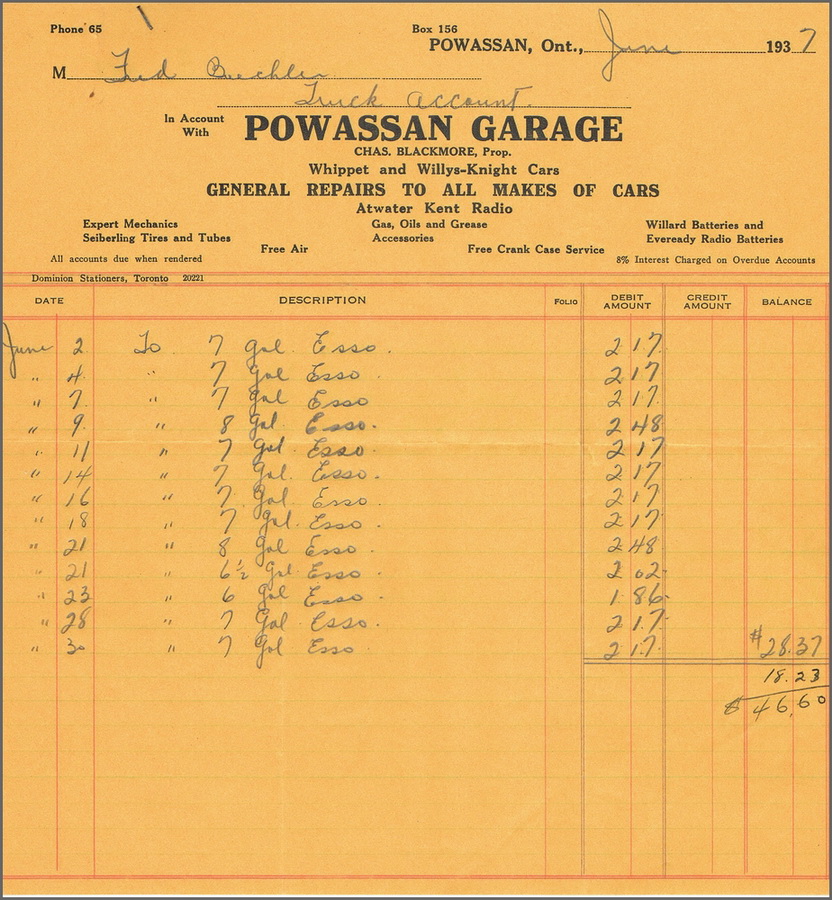 Phone 65
Box 156
POWASSAN, Ont., June 1937
M Fred Buchler
Truck Account.
In Account With POWASSAN GARAGE
CHAS. BLACKMORE, Prop.
Whippet and Willys-Knight Cars
GENERAL REPAIRS TO ALL MAKES OF CARS
Atwater Kent Radio
Expert Mechanics Gas, Oils and Grease Willard Batteries and
Seiberling Tires and Tubes Accessories Eveready Radio Batteries
Free Air Free Crank Case Service
All accounts due when rendered 8% Interest Charged on Overdue Accounts
Dominion Stationers, Toronto 20221
DATE DESCRIPTION FOLIO DEBIT AMOUNT CREDIT AMOUNT BALANCE
June 2 To 7 Gal. Esso. 2 17
" 4 " 7 Gal Esso. 2 17
" 7 " 7 Gal Esso 2 17
" 9 " 8 Gal Esso. 2 48
" 11 " 7 Gal Esso. 2 17
" 14 " 7 Gal. Esso. 2 17
" 16 " 7 Gal. Esso. 2 17
" 18 " 7 Gal. Esso. 2 17
" 21 " 8 Gal Esso. 2 48
" 21 " 6½ Gal Esso. 2 02
" 23 " 6 Gal Esso. 1 86
" 28 " 7 Gal Esso. 2 17
" 30 " 7 Gal Esso. 2 17 $28.37
18.23
$ 46.60